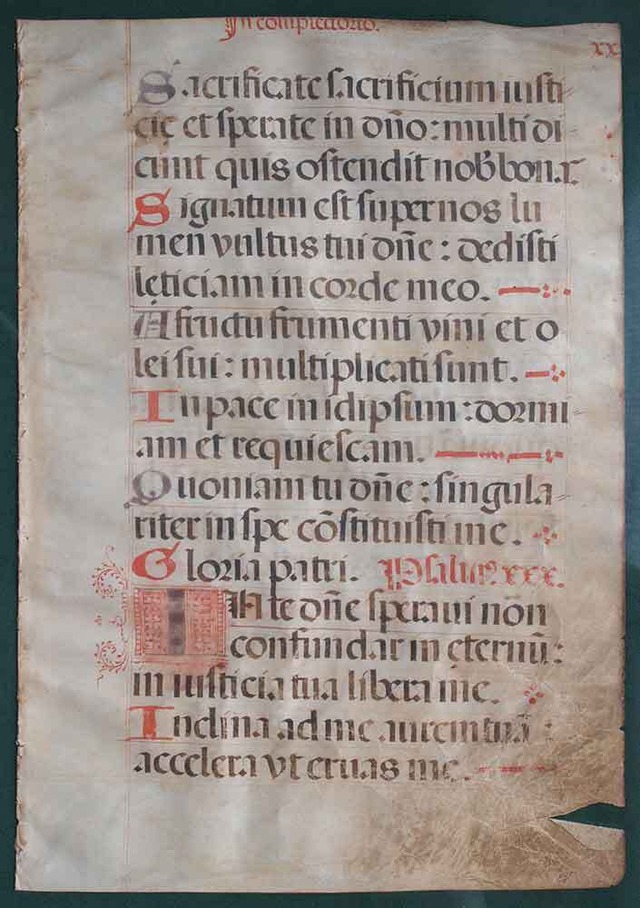 In completorio.
xx
Sacrificate sacrificium iusti
cię et sperate in dño: multi di
cunt quis ostendit nob̃ bona
Signatum est super nos lu
men vultus tui dñe: dedisti
lęticiam in corde meo.
A fructu frumenti vini et o
lei sui: multiplicati sunt.
In pace in idipsum: dormi
am et requiescam.
Quoniam tu dñe: singula
riter in spe cõstituisti me.
Gloria patri. Psalmꝰ xxx.
In te dñe speraui non
confundar in ęternũ:
in iusticia tua libera me.
Inclina ad me aurem tuã:
accelera vt eruas me.